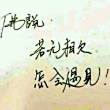 佛说
若无相欠
怎会遇见！